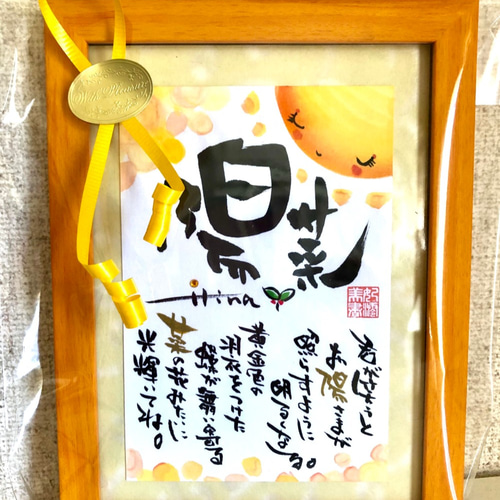 陽菜
Hina
君が笑うと
お陽さまが
照らすように
明るくなる。
黄金色の
羽衣をつけた
蝶が舞い踊る
菜の花みたいに
光輝いてね。